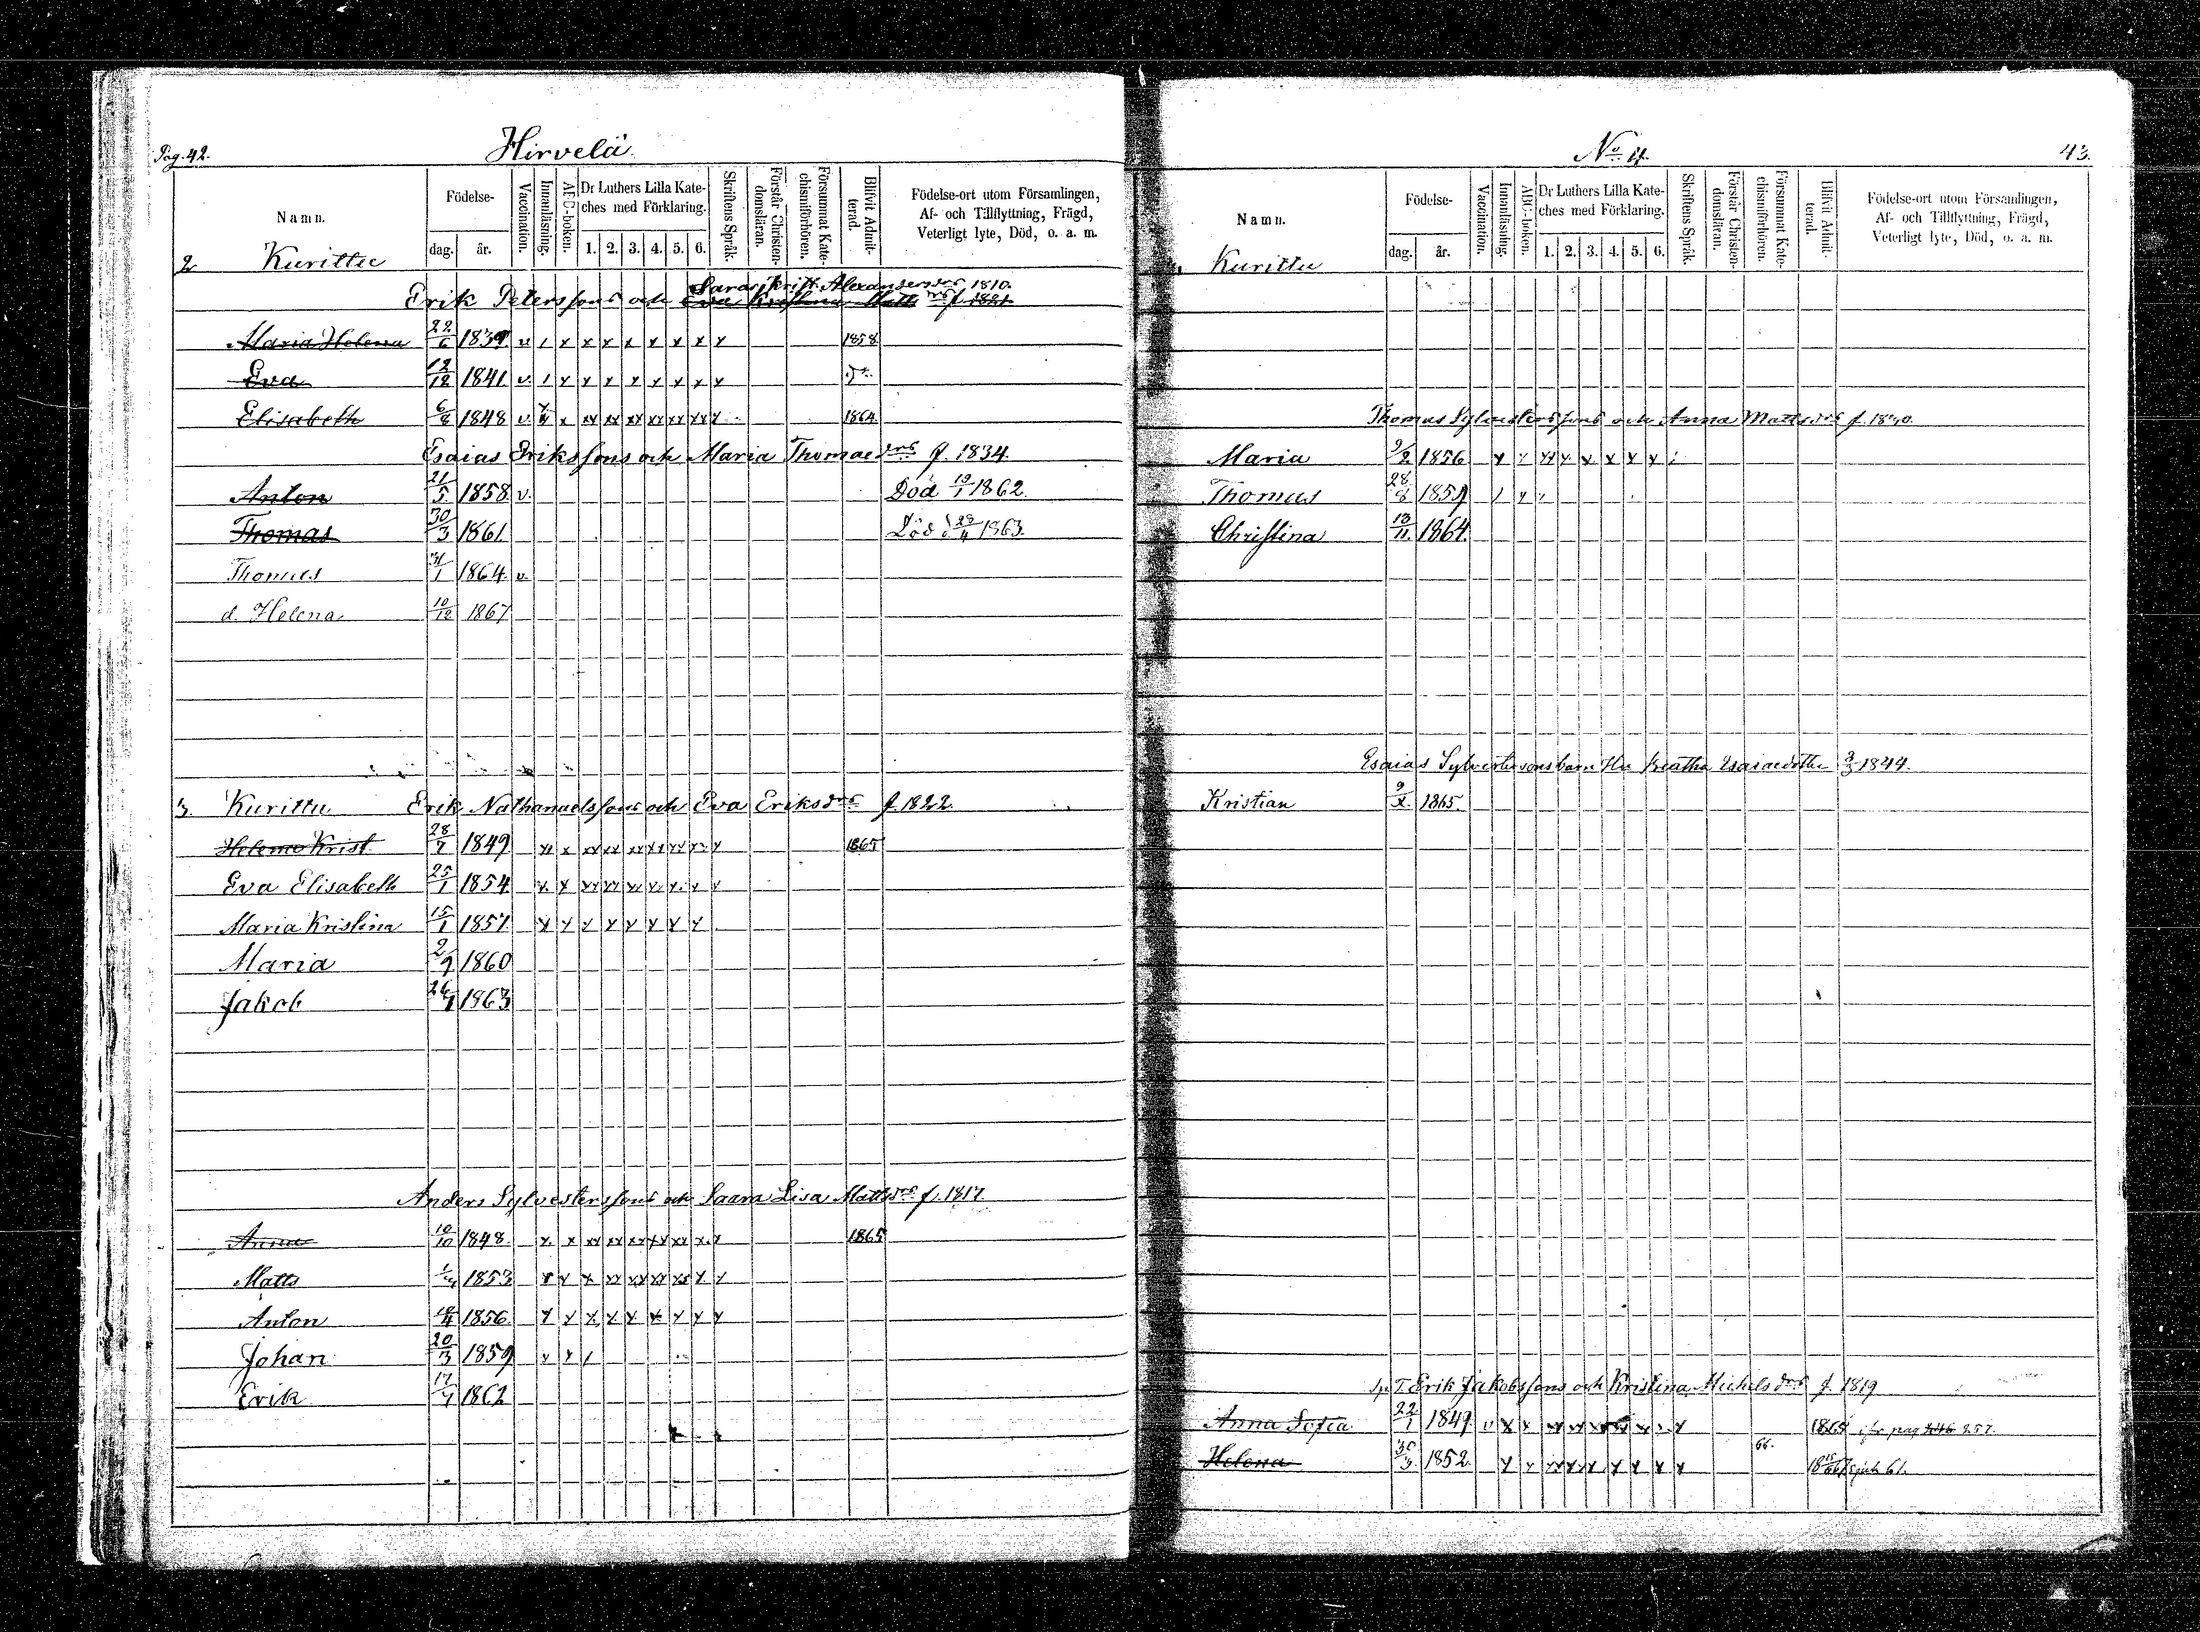 Pag. 42.
Hirvelä
Namn.
Födelse-
dag.
år.
Vaccination.
Innanläsning.
ABC-boken.
Dr Luthers Lilla Kate-
ches med Förklaring.
1. 2. 3. 4. 5. 6.
Skriftens Språk.
Förstår Christen-
domsläran.
Försummat Kate-
chismiförhören.
Blifvit Admit-
terad.
Födelse-ort utom Församlingen,
Af- och Tillflyttning, Frägd,
Veterligt lyte, Död, o. a. m.
2 Kurittu
Sara Krist. Alexandersdrs 1810.
Erik Peterssons och Eva Kristina Matt drs f. 1821
Maria Helena 22/6 1839 v / x x x x x x x x 1858
Eva 12/12 1841 v. / x x x x x x x x
Elisabeth 6/8 1848 v. x xx xx xx xx xx xx x 1864
Esaias Erikssons och Maria Thomaedrs f. 1834
Anton 21/5 1858 v. Död 19/1 1862
Thomas 30/3 1861 Död 23/4 1863.
Thomas 1864 v.
d. Helena 10/12 1867
3. Kurittu Erik Nathanaelssons och Eva Eriksdrs f. 1822
Helena Krist. 28/7 1849 xx x xx xx xx xx xx x x 1865
Eva Elisabeth 25/1 1854 x x xx xx xx x x x x
Maria Kristina 15/1 1857 x x x x x x x x
Maria 2/9 1860
Jakob 26/1 1863
Anders Sylvesterssons och Saara Lisa Mattsdrs f. 1817
Anna 10/10 1848 x x xx xx xx xx xx x x 1865
Matts 1853 x x x xx xx xx xx x x
Anton 1856 x x x x x x x x x
Johan 20/3 1859 x x /
Erik 17/7 1862
No 4.
43.
Namn.
Födelse-
dag.
år.
Vaccination.
Innanläsning.
ABC-boken.
Dr Luthers Lilla Kate-
ches med Förklaring.
1. 2. 3. 4. 5. 6.
Skriftens Språk.
Förstår Christen-
domsläran.
Försummat Kate-
chismiförhören.
Blifvit Admit-
terad.
Födelse-ort utom Församlingen,
Af- och Tillflyttning, Frägd,
Veterligt lyte, Död, o. a. m.
Kurittu
Thomas Sylvesterssons och Anna Mattsdrs f. 1830.
Maria 9/2 1856 x x xx x x x x x
Thomas 28/8 1859 / x
Christina 13/11 1864.
Esaias Sylvestersons barn Hu Beatha Esaiaedotter 3/3 1844.
Kristian 9/X. 1865.
Erik Jakobssons och Kristina Michelsdrs f. 1819
Anna Sofia 22/1 1849 v x x xx xx xx xx x x x 1865 pag 257.
Helena 1852 x x xx xx x x x x x 66. 61.